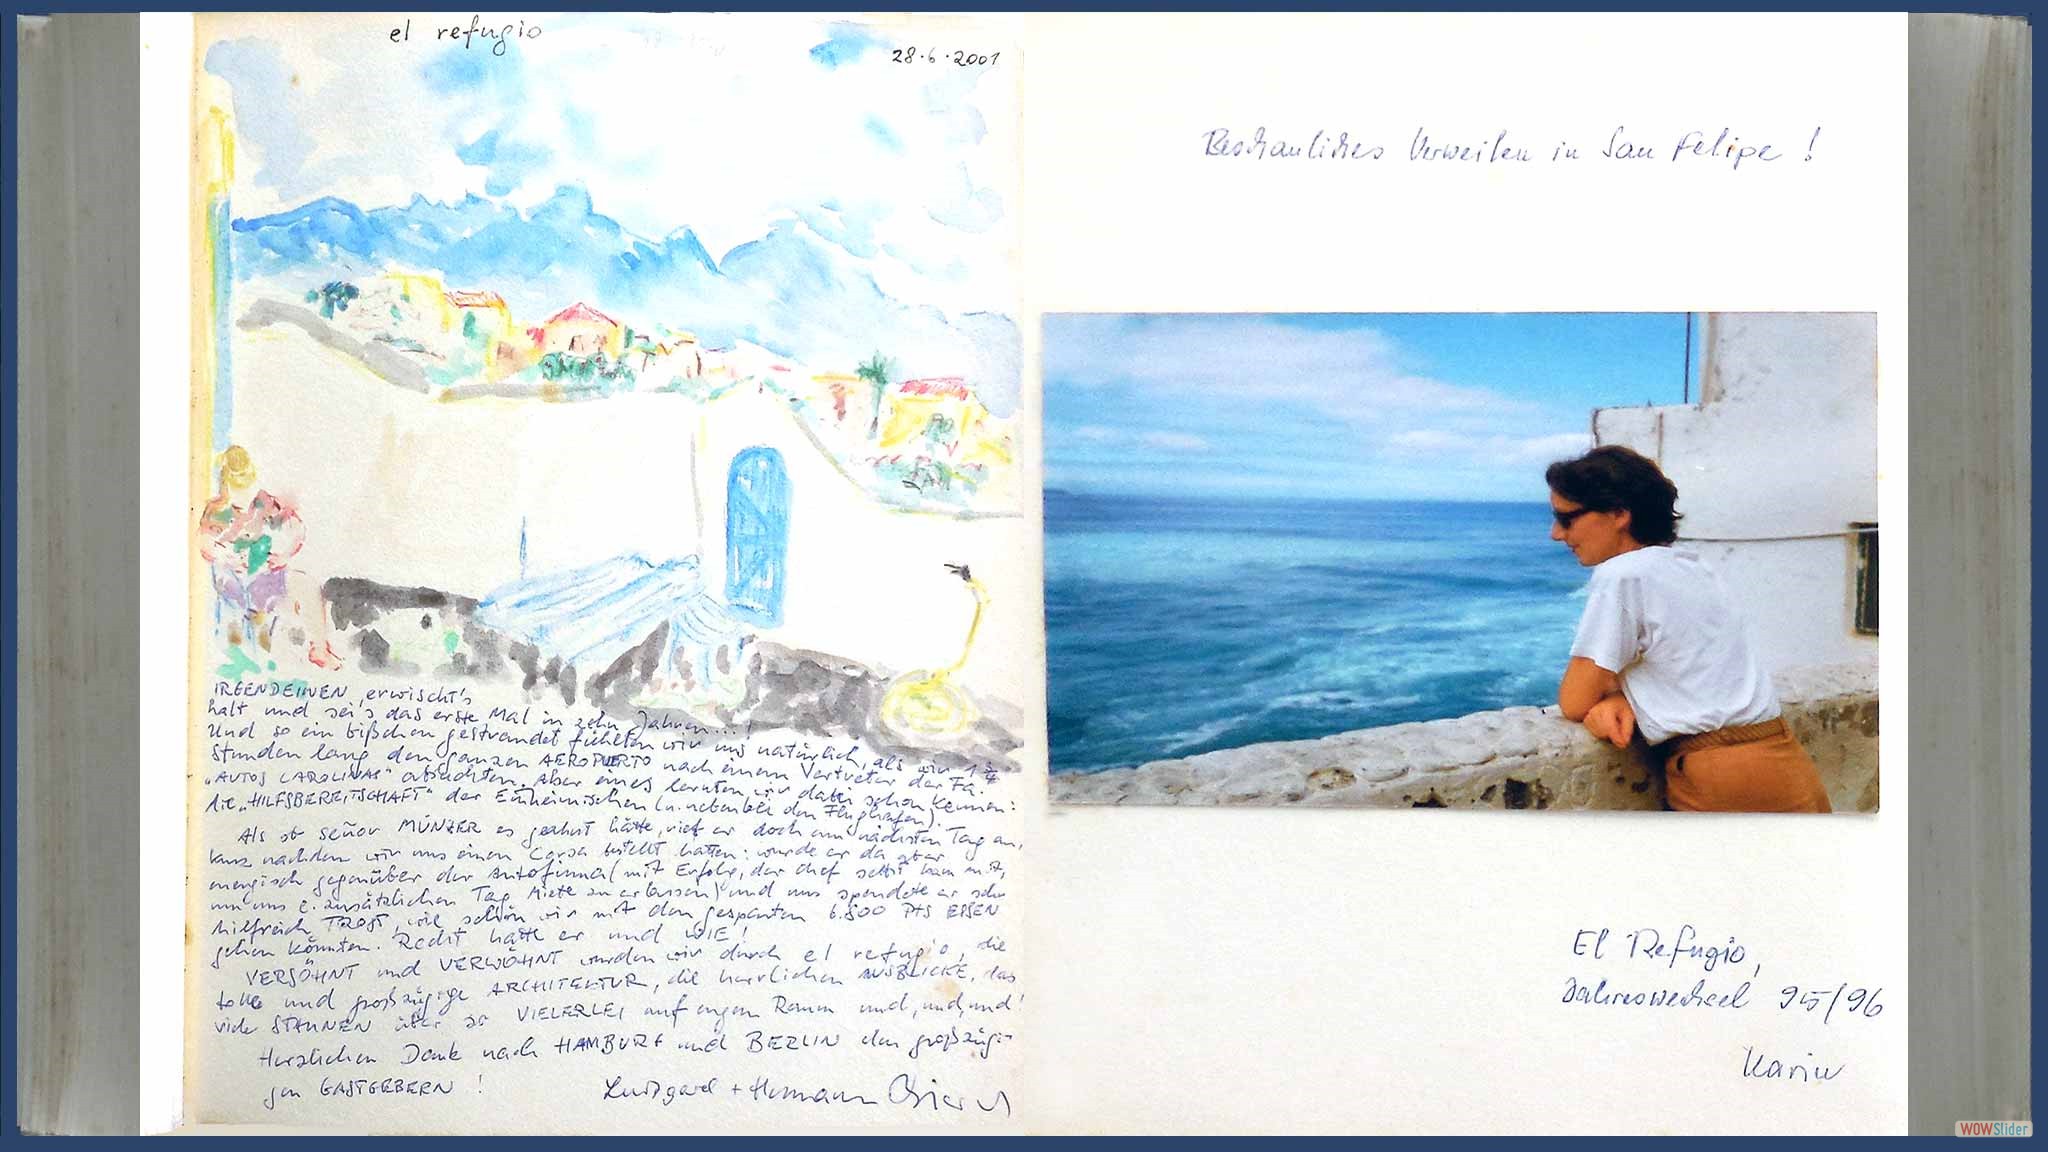 el refugio
28.6.2001
IRGENDEINEN, erwischt's
halt und sei's das erste Mal in zehn Jahren...!
Und so ein bißchen gestrandet fühlten wir uns natürlich, als wir 1 3/4
Stunden lang den ganzen AEROPUERTO nach einem Vertreter der Fa.
"AUTOS CAROLINAS" absuchten. Aber eines lernten wir dabei schon kennen:
die "HILFSBEREITSCHAFT" der Einheimischen (u. nebenbei den Flughafen).
Als ob señor MÜNZER es geahnt hätte, rief er doch am nächsten Tag an,
kurz nachdem wir uns einen Corsa bestellt hatten: wurde er da aber
energisch gegenüber der Autofirma (mit Erfolg, der Chef selbst kam mit,
um uns e. zusätzlichen Tag Miete zu erlassen) und uns spendete er sehr
hilfreich TROST, wie schön wir mit den gesparten 6.800 Pts ESSEN
gehen könnten. Recht hatte er und WIE!
VERSÖHNT und VERWÖHNT wurden wir durch el refugio, die
tolle und großzügige ARCHITEKTUR, die herrlichen AUSBLICKE, das
viele STAUNEN über so VIELERLEI auf engem Raum und, und, und!
Herzlichen Dank nach HAMBURG und BERLIN den großzügi-
gen GASTGEBERN!
Luitgard + Hermann
Beschauliches Verweilen in San Felipe!
El Refugio,
Jahreswechsel 95/96
Karin
WOWSlider